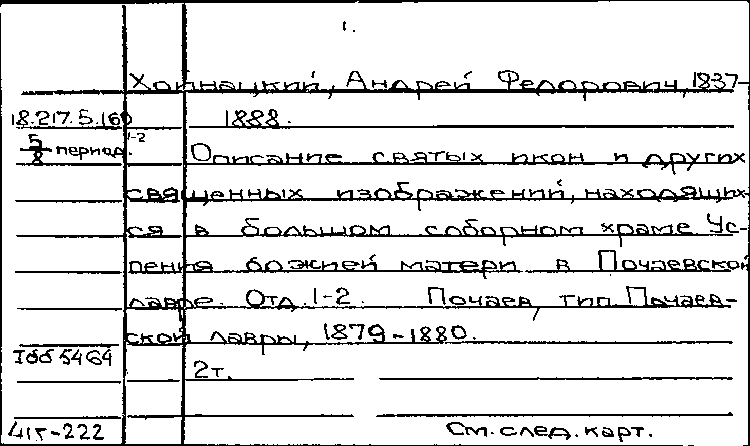 1.
Хойнацкий, Андрей Федорович, 1837-
18.217.5.160 1888.
5/8 период. 1-2 Описание святых икон и других
священных изображений, находящих-
ся в большом соборном храме Ус-
пения божией матери в Почаевской
лавре. Отд. 1-2. Почаев, тип. Почаев-
ской лавры, 1879-1880.
Iбб 5464 2т.
415-222 См. след. карт.